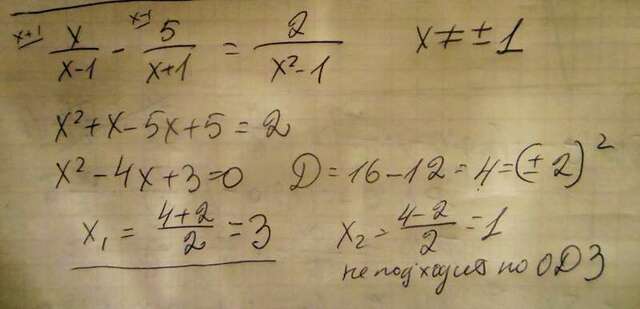 x+1 x/(x-1) - x-1 5/(x+1) = 2/(x²-1) x ≠ ±1
x²+x-5x+5=2
x²-4x+3=0 D=16-12=4=(±2)²
x₁ = (4+2)/2 = 3 x₂ = (4-2)/2 = 1
не подходит по ОДЗ